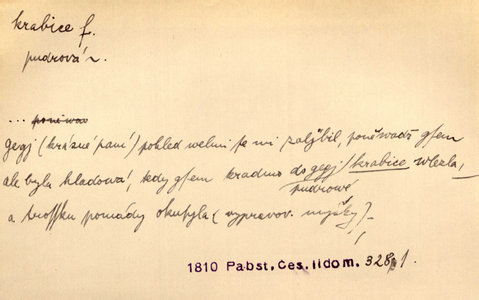 krabice f.
pudrová n.
... poněwav
gegj (krásné paní) pohled welmi se mi zaljbil, poněwadž gsem
ale byla hladowá, kdy gsem kradmo do gegj krabice wlezla,
pudrowé
a trossku pomády okusyla (vypravov. myšky).
1810 Pabst, Čes. lidom. 328,1.